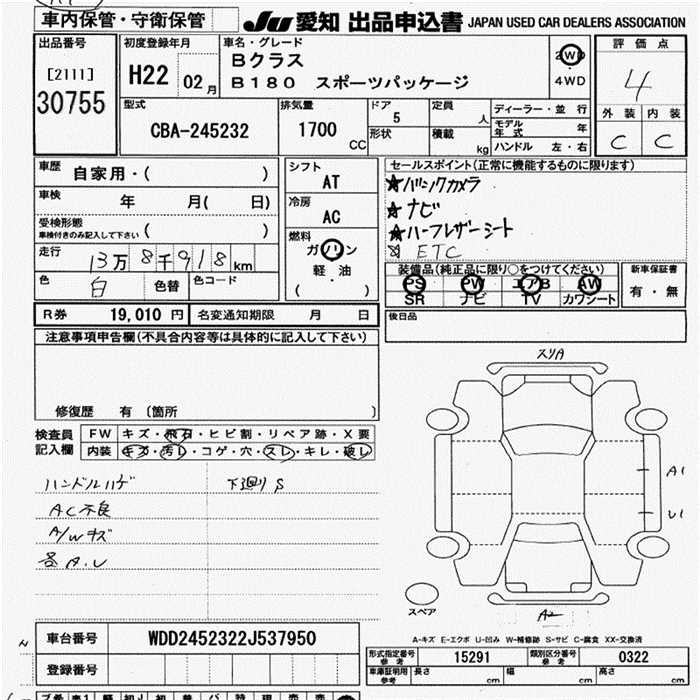 車内保管・守衛保管
JU 愛知 出品申込書 JAPAN USED CAR DEALERS ASSOCIATION
出品番号
[2111]
30755
初度登録年月
H22 02月
車名・グレード
Bクラス
B180 スポーツパッケージ
2WD
4WD
評価点
4
外装 内装
C C
型式
CBA-245232
排気量
1700 CC
ドア
5
形状
定員
人
積載
kg
ディーラー・並行
モデル年式 年
ハンドル 左・右
車歴
自家用・( )
車検
年 月( 日)
受検形態
車検付きのみ記入して下さい ( )
走行
13万8千918km
色
白
色替
色コード
シフト
AT
冷房
AC
燃料
ガソリン
軽・油
( )
セールスポイント(正常に機能するものに限ります)
★バックカメラ
★ナビ
★ハーフレザーシート
ETC
装備品(純正品に限り○をつけてください)
PS PW エアB AW
SR ナビ TV カワシート
新車保証書
有・無
R券 19,010円
名変通知期限 月 日
後日品
注意事項申告欄(不具合内容等は具体的に記入して下さい)
修復歴 有 〔箇所 〕
検査員記入欄
FW キズ・飛石・ヒビ割・リペア跡・X要
内装 キズ・汚レ・コゲ・穴・スレ・キレ・破レ
ハンドルハゲ
下廻りS
AC不良
A/Wキズ
各A.U
スリA
A1
U1
スペア
A2
A-キズ E-エクボ U-凹み W-補修跡 S-サビ C-腐食 XX-交換済
車台番号
WDD2452322J537950
登録番号
形式指定番号
参考
15291
類別区分番号
参考
0322
車庫証明用
参考
長さ cm
幅 cm
高さ cm